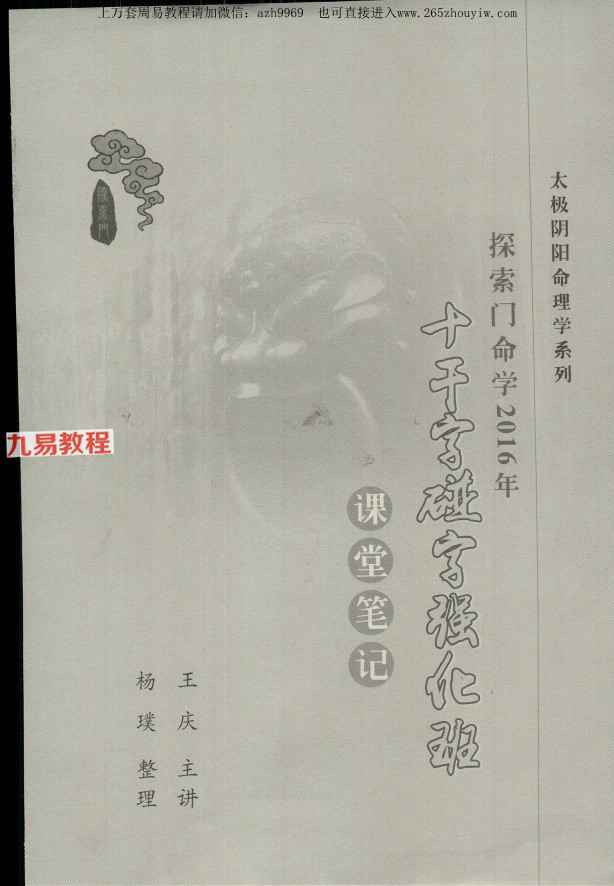 上万套周易教程请加微信：azh9969　也可直接进入www.265zhouyiw.com
太极阴阳命理学系列
探索门命学2016年
十干字碰字强化班
课堂笔记
王庆 主讲
杨璞 整理
九易教程